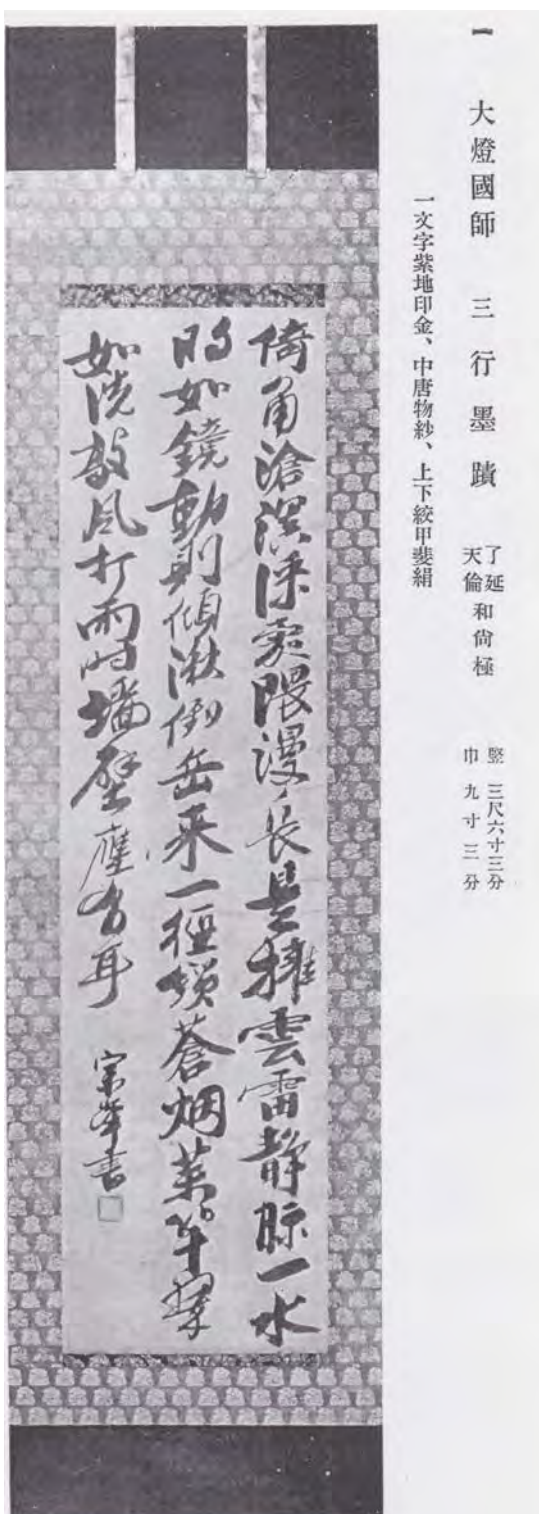 一 大燈國師 三行墨蹟 了延 天倫 和尚極 竪三尺六寸三分 巾九寸三分
一文字紫地印金、中唐物紗、上下絞甲斐絹
倚角滄溟深處隈漫々長是擁雲雷静一水
如鏡動則傾湫倒岳来一徑蒼烟
如洗敲風打雨時墻壁應有耳
宗峯書